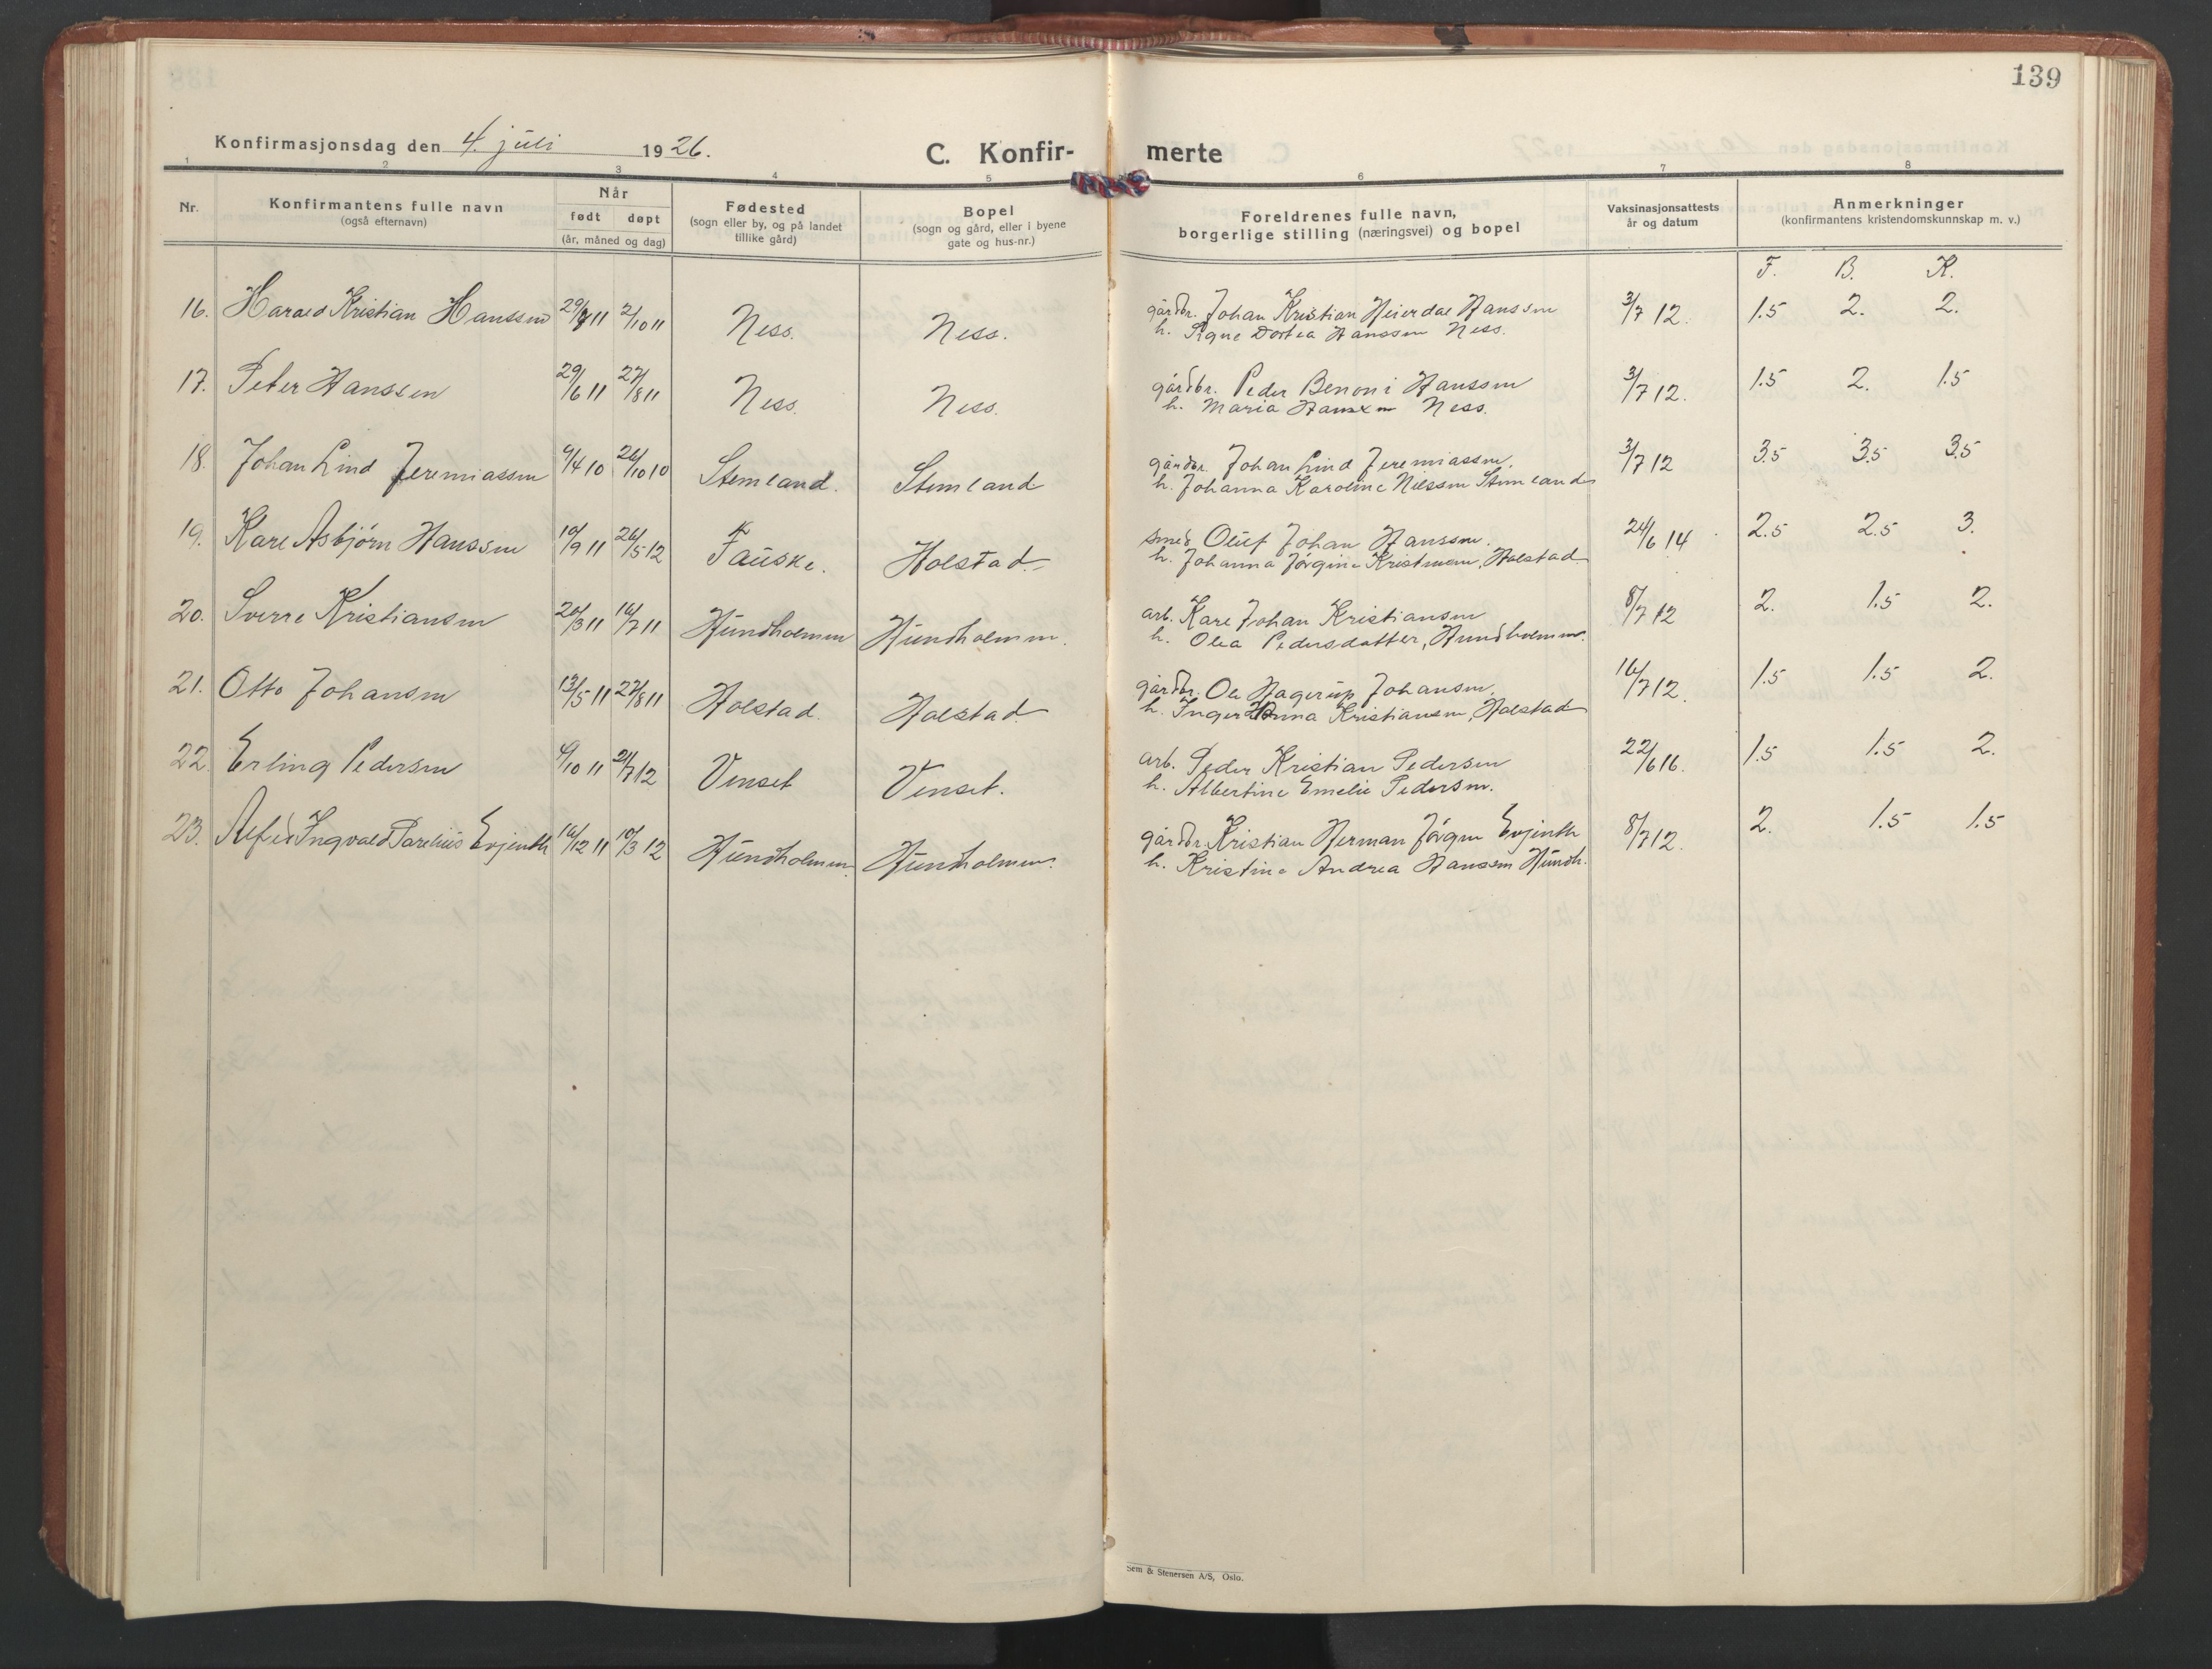 139
Konfirmasjonsdag den 4. juli 1926.
C. Konfir- merte
1 2 3 4 5 6 7 8
Nr.
Konfirmantens fulle navn
(også efternavn)
Når
født døpt
(år, måned og dag)
Fødested
(sogn eller by, og på landet
tillike gård)
Bopel
(sogn og gård, eller i byene
gate og hus-nr.)
Foreldrenes fulle navn,
borgerlige stilling (næringsvei) og bopel
Vaksinasjonsattests
år og datum
Anmerkninger
(konfirmantens kristendomskunnskap m. v.)
F. B. K.
16. Harald Kristian Hanssen 11 2/10 11 Ness. Ness. gårdbr. Johan Kristian Heierdal Hanssen 3/7 12. 1.5 2. 2.
h. Signe Dortea Hanssen Ness.
17. Peter Hanssen 29/6 11 27/8 11 Ness. Ness. gårdbr. Peder Benoni Hanssen 3/7 12. 1.5 2. 1.5
h. Maria Hanssen Ness.
18. Johan Lind Jeremiassen 9/4 10 26/10 10 Stemland. Stemland gårdbr. Johan Lind Jeremiassen. 3/7 12 3.5 3.5 3.5
h. Johanna Karoline Nilssen Stemland
19. Kare Asbjørn Hanssen 10/9 11 26/5 12 Fauske. Holstad. smed Oluf Johan Hanssen. 24/6 14 2.5 2.5 3.
h. Johanna Jørgine Kristensen, Holstad
20. Sverre Kristiansen 20/3 11 16/7 11 Hundholmen Hundholmen. arb. Kare Johan Kristiansen 8/7 12 2. 1.5 2.
h. Olea Pedersdatter, Hundholmen.
21. Otto Johansen 13/5 11 27/8 11 Holstad. Holstad. gårdbr. Ole Hagerup Johansen. 16/7 12. 1.5 1.5 2.
h. Inger Anna Kristiansen, Holstad
22. Erling Pedersen 9/10 11 21/7 12 Venset Venset. arb. Peder Kristian Pedersen 22/6 16. 1.5 1.5 2.
h. Albertine Emelie Pedersen.
23. Alfred Ingvald Parelius Evjenth 16/12 11 10/3 12 Hundholmen. Hundholmen. gårdbr. Kristian Herman Jørgen Evjenth 8/7 12. 2. 1.5 1.5
h. Kristine Andrea Hanssen Hundh.
Sem & Stenersen A/S, Oslo.